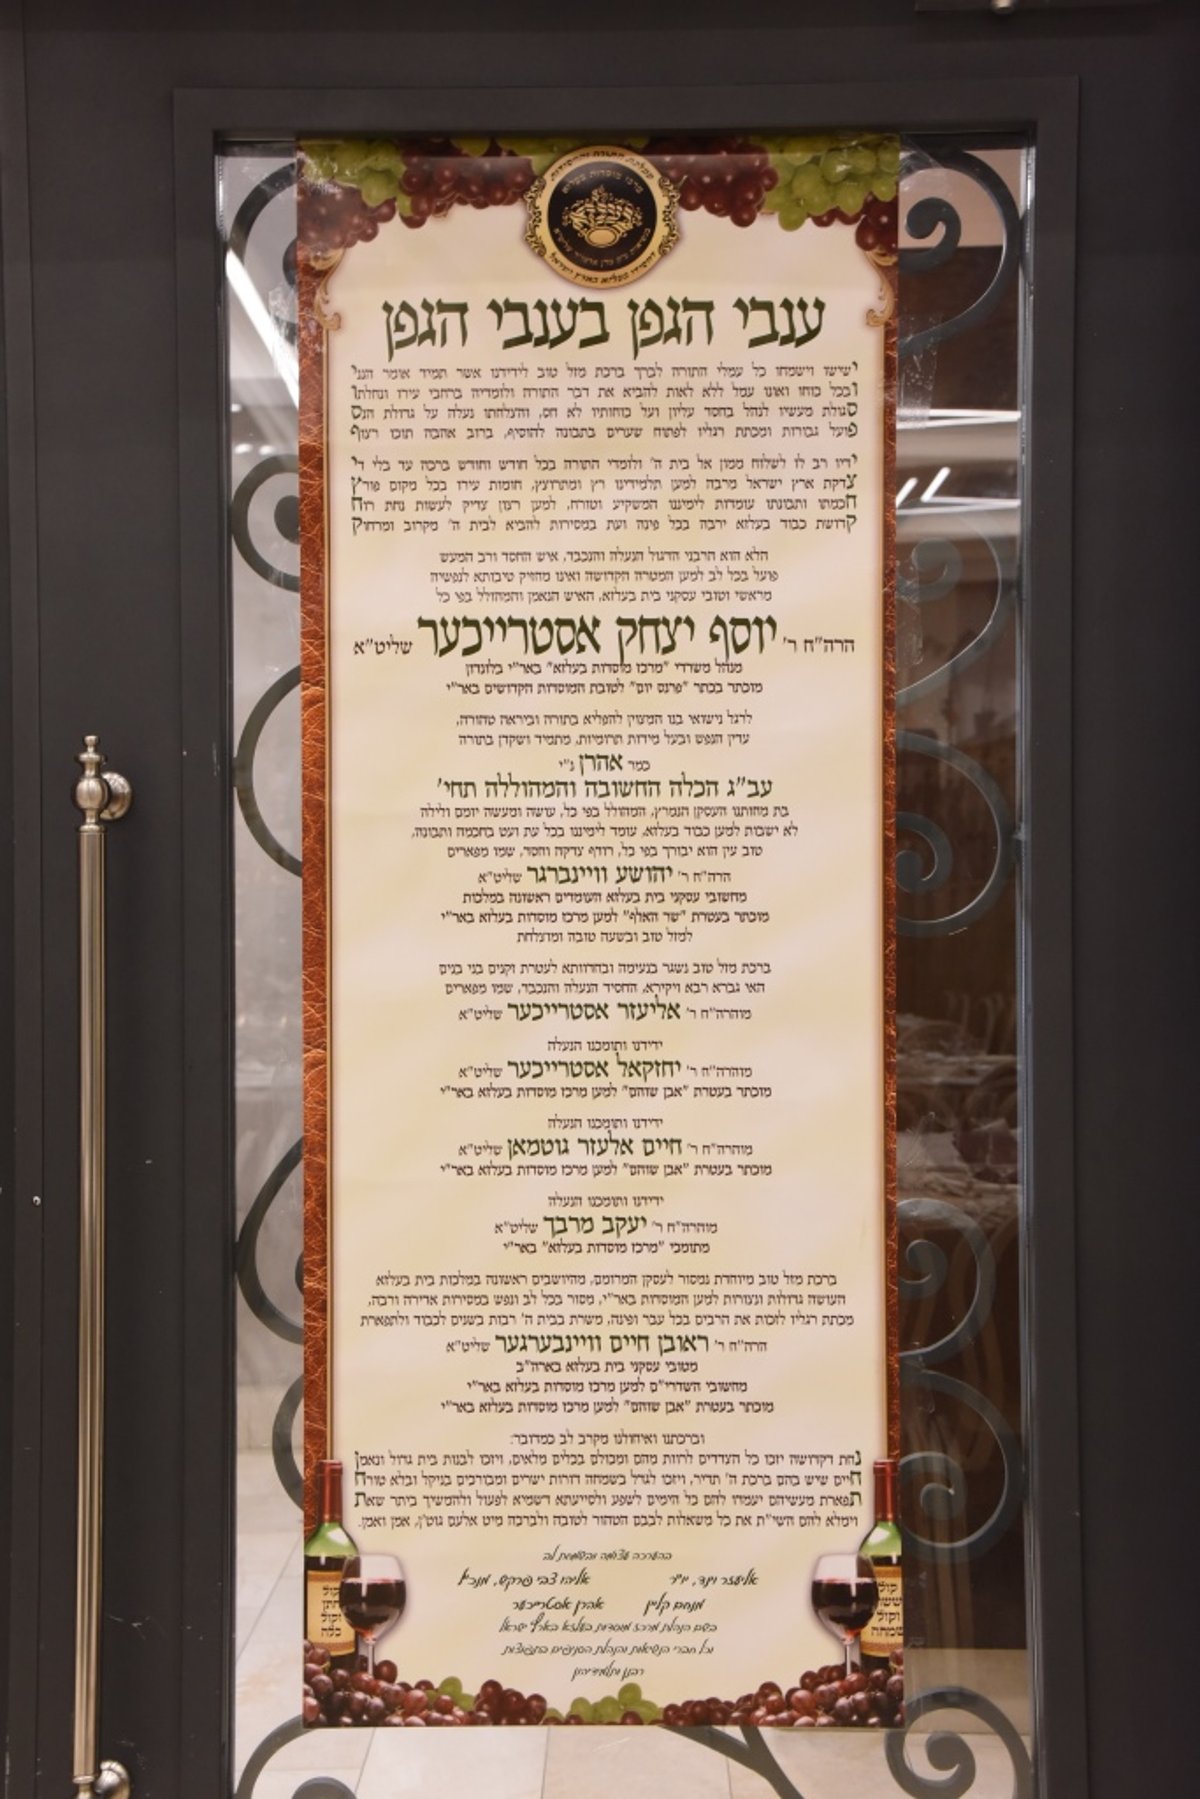 מרכז מוסדות בעלזא
ענבי הגפן בענבי הגפן
ישישו וישמחו כל עמלי התורה לברך ברכת מזל טוב לידידנו אשר תמיד אומר הנני
ובכל כוחו ואונו עמל ללא לאות להביא את דבר התורה ולומדיה ברחבי עירו ונחלתו
סגולת מעשיו לנהל בחסד עליון ועל כוחותיו לא חס, והצלחתו נעלה על גדולת הנס
פועל גבורות ומכתת רגליו לפתוח שערים בתבונה להוסיף, ברוב אהבה תוכו רצוף
ידיו רב לו לשלוח ממון אל בית ה' ולומדי התורה בכל חודש וחודש ברכה עד בלי די
צדקת ארץ ישראל מרבה למען תלמידינו רץ ומתרוצץ, חומות עירו בכל מקום פורץ
חכמתו ותבונתו עומדות לימיננו המשקיע וטורח, למען רצון צדיק לעשות נחת רוח
קדושת כבוד בעלזא ירבה בכל פינה ועת במסירות להביא לבית ה' מקרוב ומרחוק
הלא הוא הרבני הדגול הנעלה והנכבד, איש החסד ורב המעש
פועל בכל לב למען המטרה הקדושה ואינו מחזיק טיבותא לנפשיה
מראשי וטובי עסקני בית בעלזא, האיש הנאמן והמהולל בפי כל
הרה"ח ר' יוסף יצחק אסטרייכער שליט"א
מנהל משרדי "מרכז מוסדות בעלזא" באר"י בלונדון
מוכתר בכתר "פרנס יום" לטובת המוסדות הקדושים באר"י
לרגל נישואי בנו המצוין להפליא בתורה וביראה טהורה,
עדין הנפש ובעל מידות תרומיות, מתמיד ושקדן בתורה
כמר אהרן נ"י
עב"ג הכלה החשובה והמהוללה תחי'
בת מחותנו העסקן הנמרץ, המהולל בפי כל, עושה ומעשה יומם ולילה
לא ישבות למען כבוד בעלזא, עומד לימיננו בכל עת ועט בחכמה ותבונה,
טוב עין הוא יבורך בפי כל, רודף צדקה וחסד, שמו מפארים
הרה"ח ר' יהושע וויינברגר שליט"א
מחשובי עסקני בית בעלזא העומדים ראשונה במלכות
מוכתר בעטרת "שר האלף" למען מרכז מוסדות בעלזא באר"י
למזל טוב ובשעה טובה ומוצלחת
ברכת מזל טוב נשגר בנעימה ובחרוותא לעטרת זקנים בני בנים
האי גברא רבא ויקירא, החסיד הנעלה והנכבד, שמו מפארים
מוהרה"ח ר' אליעזר אסטרייכער שליט"א
ידידנו ותומכנו הנעלה
מוהרה"ח ר' יחזקאל אסטרייכער שליט"א
מוכתר בעטרת "אבן שוהם" למען מרכז מוסדות בעלזא באר"י
ידידנו ותומכנו הנעלה
מוהרה"ח ר' חיים אלעזר גוטמאן שליט"א
מוכתר בעטרת "אבן שוהם" למען מרכז מוסדות בעלזא באר"י
ידידנו ותומכנו הנעלה
מוהרה"ח ר' יעקב מרבך שליט"א
מתומכי "מרכז מוסדות בעלזא" באר"י
ברכת מזל טוב מיוחדת נמסור לעסקן המרומם, מהיושבים ראשונה במלכות בית בעלזא
העושה גדולות ונצורות למען המוסדות באר"י, מסור בכל לב ונפש במסירות אדירה ורבה,
מכתת רגליו לזכות את הרבים בכל עבר ופינה, משרת בבית ה' רבות בשנים לכבוד ולתפארת
הרה"ח ר' ראובן חיים וויינבערגער שליט"א
מטובי עסקני בית בעלזא בארה"ב
מחשובי השדרי"ם למען מרכז מוסדות בעלזא באר"י
מוכתר בעטרת "אבן שוהם" למען מרכז מוסדות בעלזא באר"י
וברכתנו ואיחולנו מקרב לב כמדובר:
נחת דקדושה יזכו כל הצדדים לרוות מהם ומכולם בכלים מלאים, ויזכו לבנות בית גדול ונאמן
חיים שיש בהם ברכת ה' תדיר, ויזכו לגדל בשמחה דורות ישרים ומבורכים בניקל ובלא טורח
תפארת מעשיהם יעמדו להם כל הימים לשפע ולסייעתא דשמיא לפעול ולהמשיך ביתר שאת
וימלא להם השי"ת את כל משאלות לבבם הטהור לטובה ולברכה מיט אלעס גוט'ן, אמן ואמן.
בהערכה עצומה ובשמחת לב
אליעזר וינד, יו"ר אליהו צבי פורקש, מנכ"ל
מנחם קליין אהרן אסטרייכער
בשם הנהלת מרכז מוסדות בעלזא בארץ ישראל
וכל חברי הנשיאות והנהלת הסניפים בתפוצות
רבנן ותלמידיהון
קול
חתן
וקול
כלה
קול
ששון
וקול
שמחה